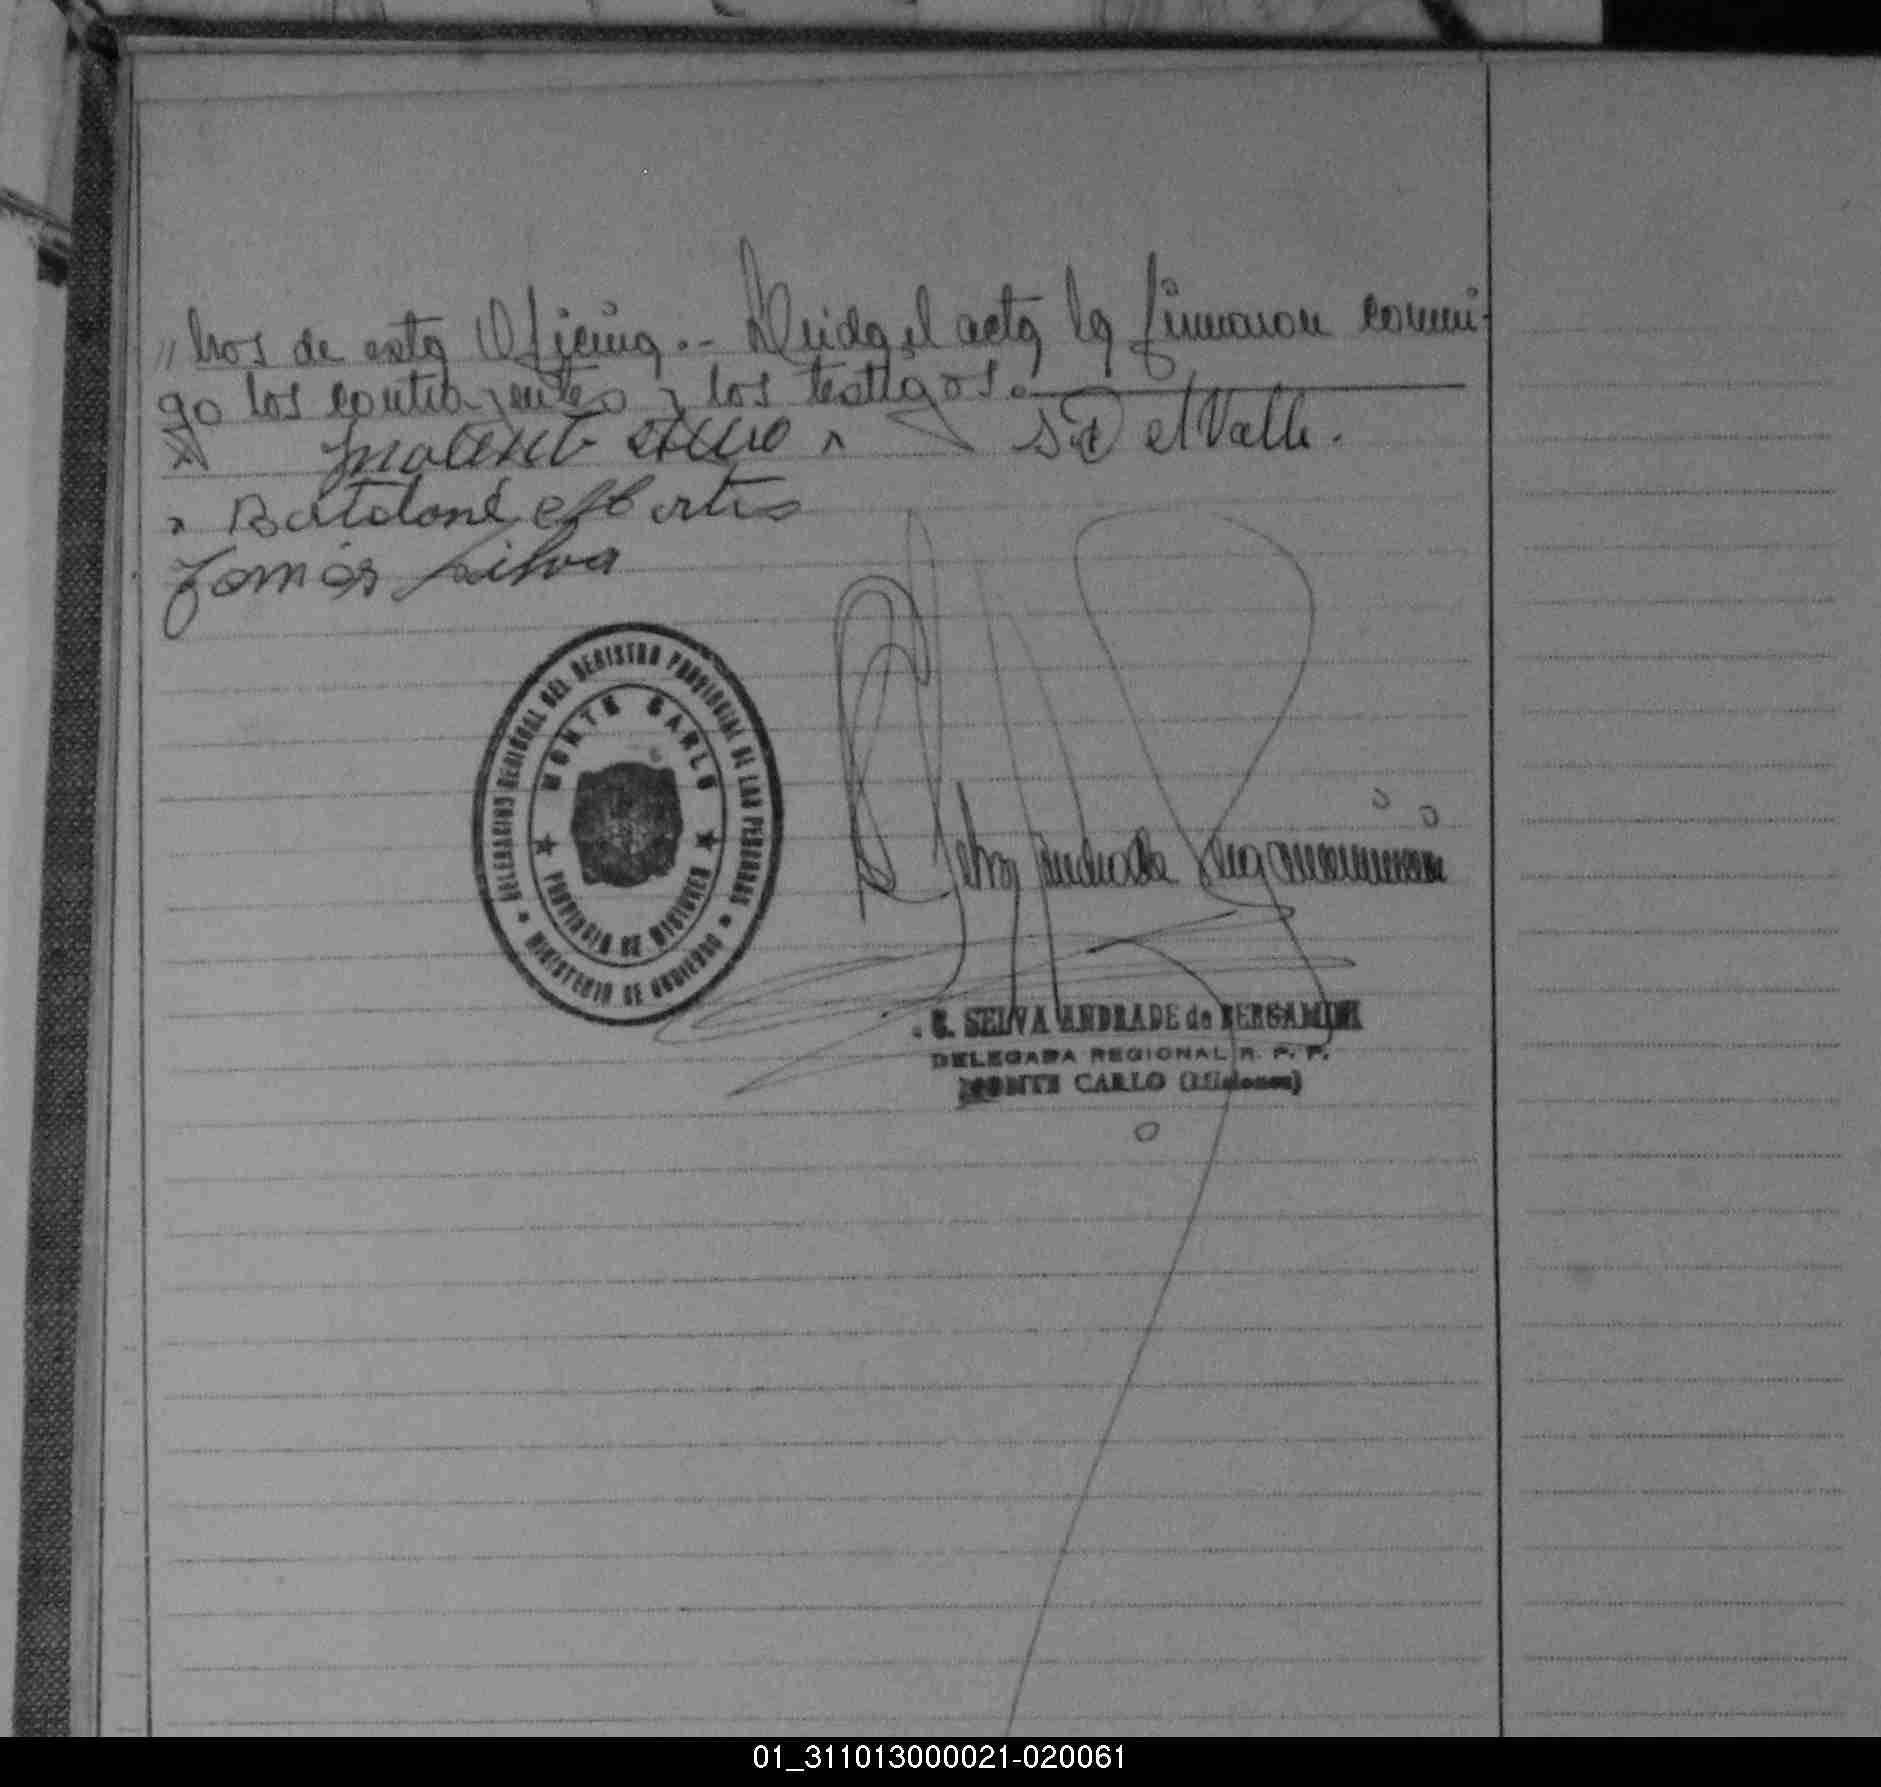 „ hos de esta Oficina.- Leida el acta la firmaron conmi-
go los contrayentes y los testigos.
S. D. del Valle.
Bartolomé Albertis
Tomás Silva
DELEGACION REGIONAL DEL REGISTRO PROVINCIAL DE LAS PERSONAS
MONTE CARLO
PROVINCIA DE MISIONES
MINISTERIO DE GOBIERNO
Selva Andrade Bergamini
C. SELVA ANDRADE de BERGAMINI
DELEGADA REGIONAL R. P. P.
MONTE CARLO (Misiones)
01_311013000021-020061